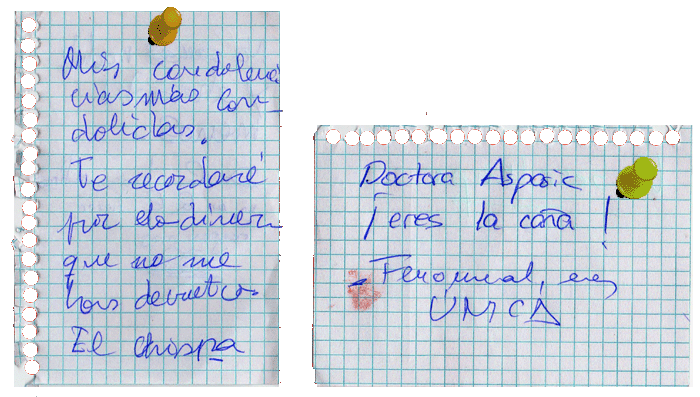 Mis condolen
cias mas con-
dolidas.
Te recordaré
por el diner
que no me
has devuelto
El chispa
Doctora Aspasic
¡eres la caña!
- Fenomenal, eres
ÚNICA